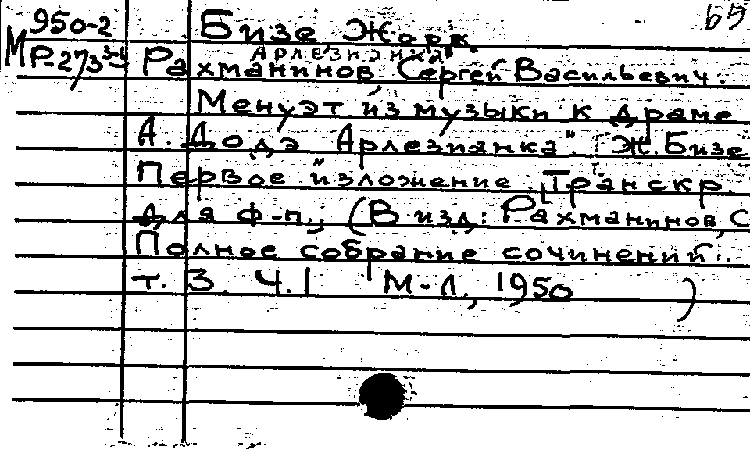 65
950-2 Бизе Жорж.
Арлезианка
МР-273 Рахманинов Сергей Васильевич.
Менуэт из музыки к драме
А. Додэ "Арлезианка" Ж. Бизе
Первое изложение. Транскр.
для ф-п.; (В изд.: Рахманинов, С
Полное собрание сочинений.
т. 3. Ч. 1 М-Л., 1950 )